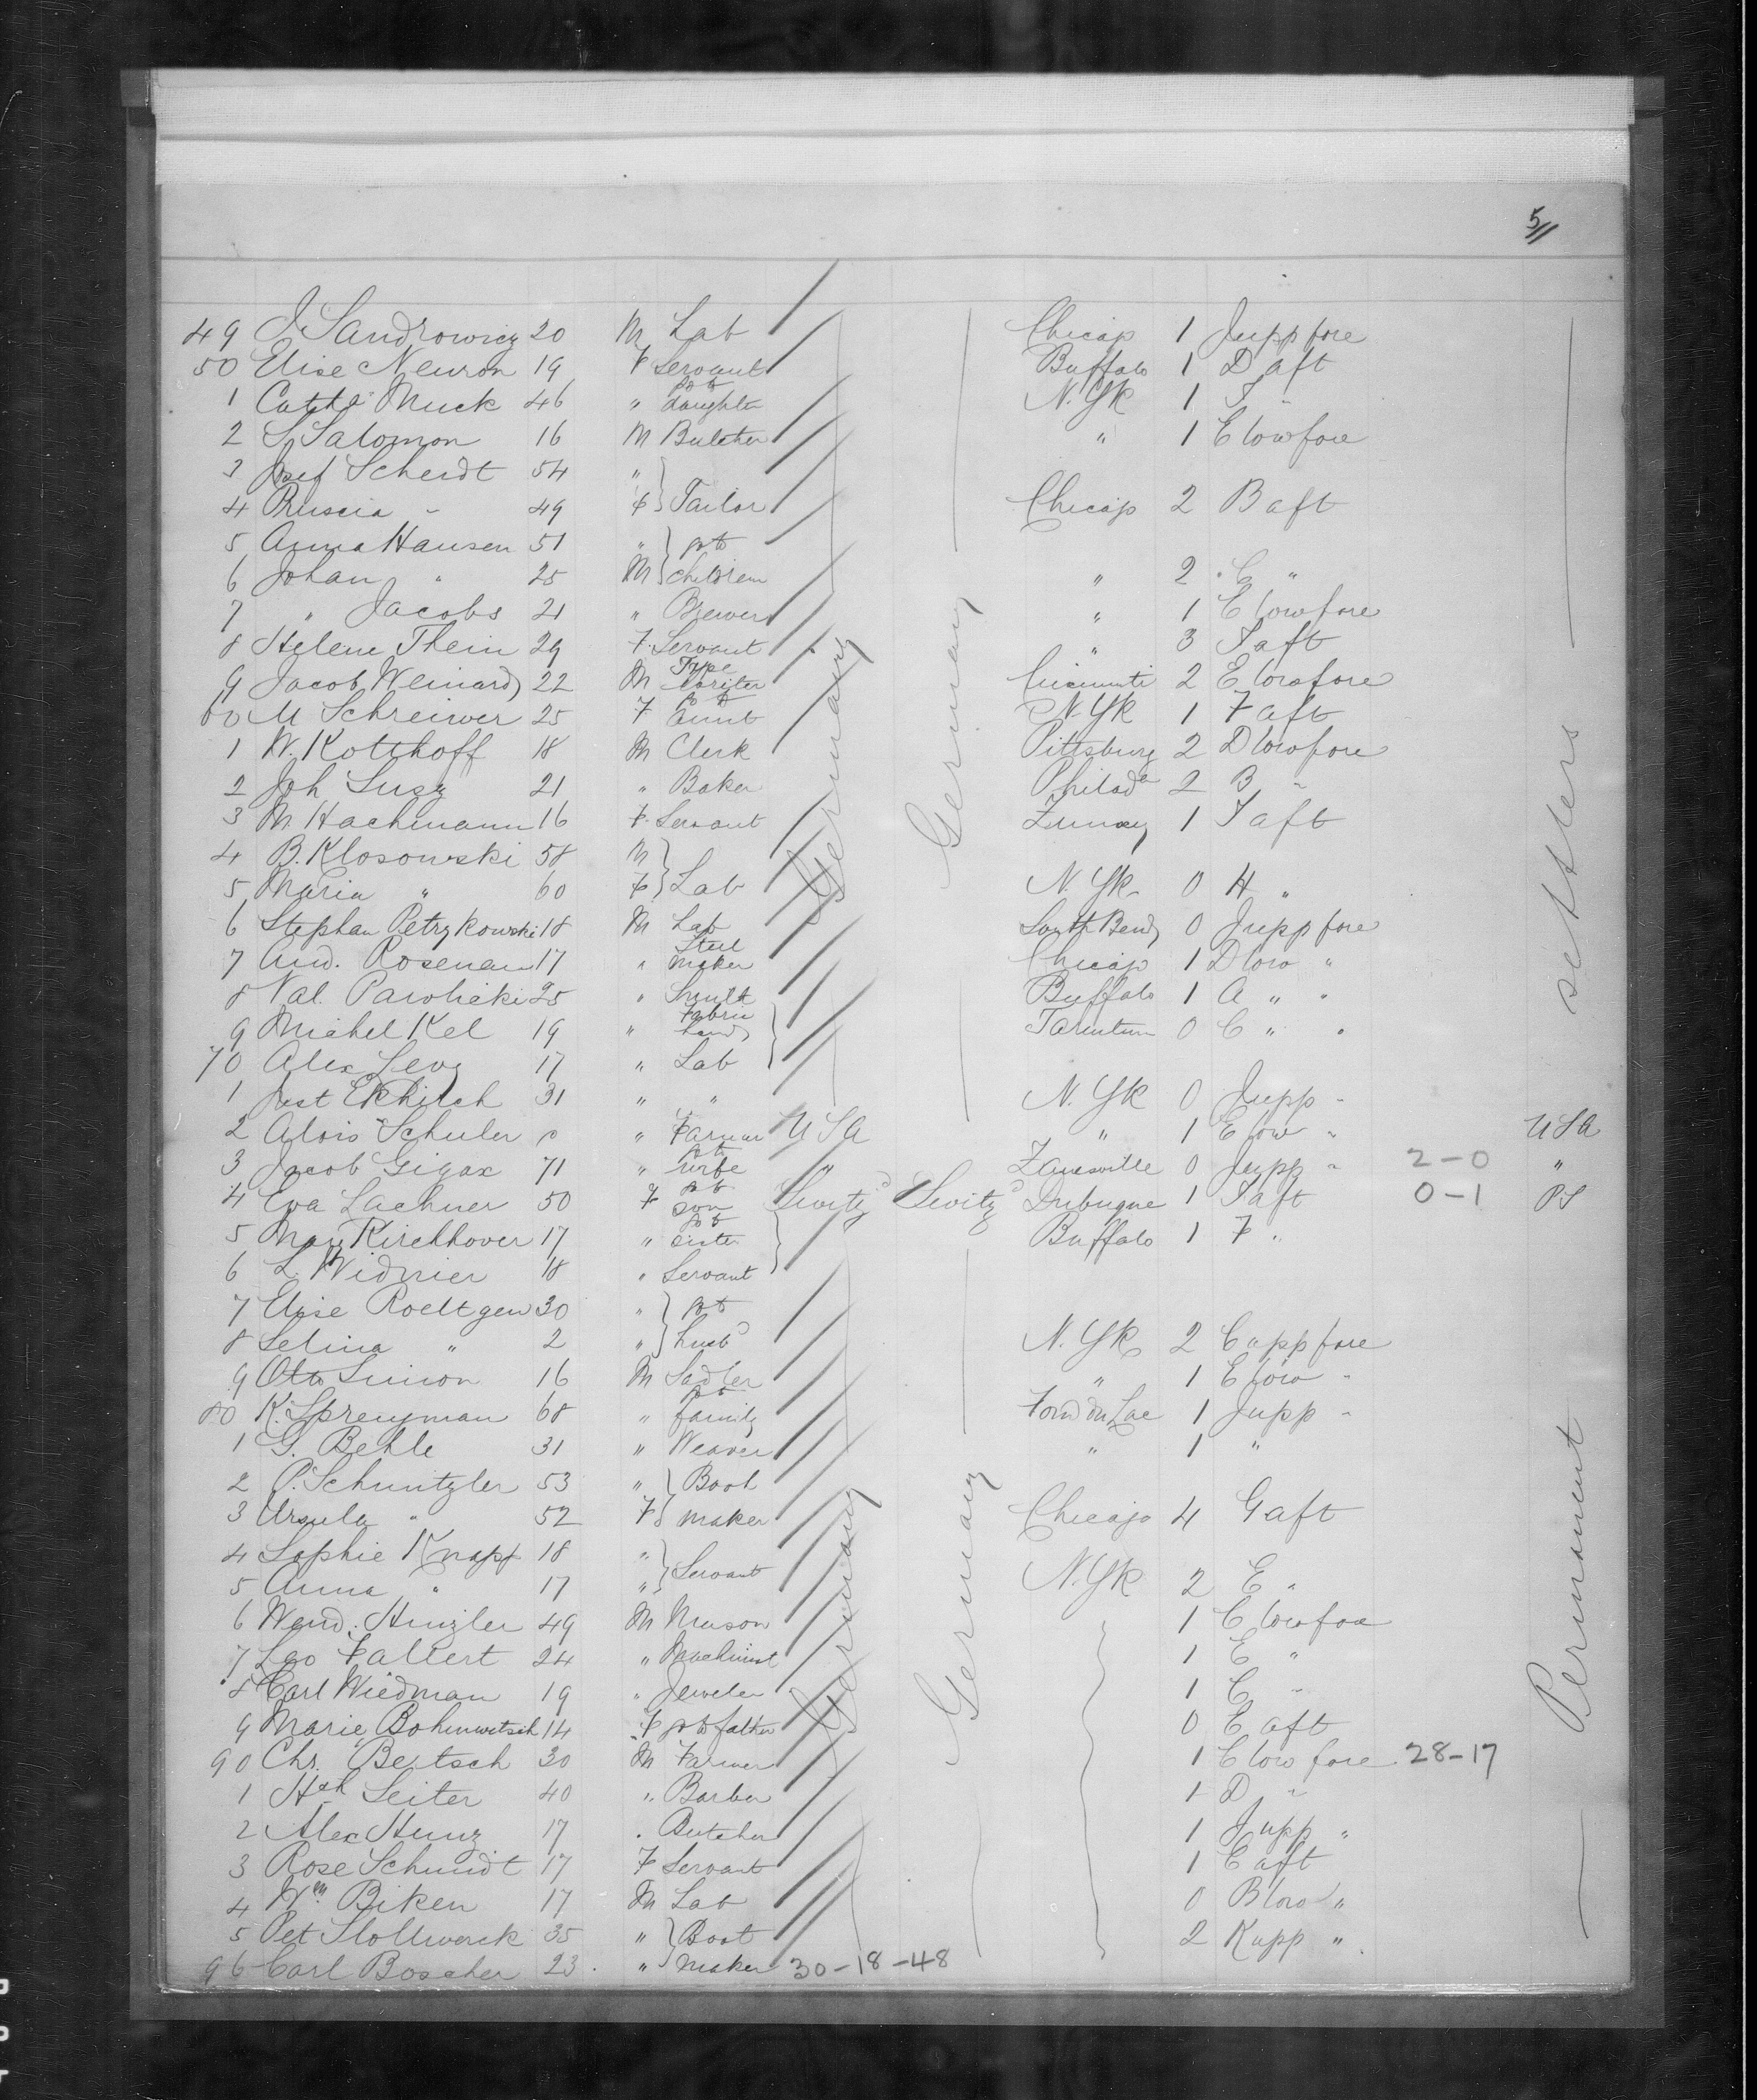 5/11
49 J Sandrowicz 20 M Lab Chicago 1 J upp fore
50 Elise Neuron 19 F Servant Buffalo 1 D aft
1 Cathe Muck 46 " to daughter N. Yk 1 J "
2 S Salomon 16 M Butcher " 1 E low fore
3 Josef Scherdt 54 "
4 Ruscia " 49 F Tailor Chicago 2 B aft
5 Anna Hansen 51 " to
6 Johan " 25 M children " 2 C "
7 " Jacobs 21 " Brewer " 1 E low fore
8 Helene Thein 29 F Servant " 3 J aft
9 Jacob Weinard 22 M Type writer Cincinnati 2 E low fore
60 M Schreiwer 25 F to aunt N. Yk 1 F aft
1 W. Kotthoff 18 M Clerk Pittsburg 2 D low fore
2 Joh Susz 21 " Baker Philada 2 B "
3 M Hachmann 16 F Servant 1 J aft
4 B. Klosowski 58 M
5 Maria " 60 F Lab N. Yk 0 H "
6 Stephan Petrykowski 18 M Lab South Bend 0 J upp fore
7 And. Rosenau 17 " Steel maker Chicago 1 D low "
8 Val. Pawlicki 25 " Smith Buffalo 1 A " "
9 Michel Kel 19 " Fabric hand Tarentum 0 C " "
70 Alex Levy 17 " Lab
1 Just 31 " " N. Yk 0 J upp "
2 Alois Schuler " Farmer USA " 1 E low " USA
3 Jacob Gigax 71 " to wife " Zanesville 0 J upp " 2-0 "
4 Eva Lachner 50 F to son Switzd Switzd Dubuque 1 J aft 0-1 PS
5 Mary Kirchhover 17 " to sister Buffalo 1 F "
6 L. Widmer 18 " Servant
7 Elise Roeltgen 30 " to
8 Selina " 2 " husbd N. Yk 2 C upp fore
9 Otto Simon 16 M Sadler " 1 E low "
80 K. Sprengman 68 " to family Fond du Lac 1 J upp "
1 G. Behle 31 " Weaver " 1 "
2 P. Schmitzler 53 " Boot
3 Ursula " 52 F maker Chicago 4 G aft
4 Sophie Knapf 18 "
Servant
5 Anna " 17 " N. Yk 2 E "
6 Wend. Hinzler 49 M Mason 1 C low fore
7 Leo Fallert 24 " Machinist 1 E "
8 Carl Wiedman 19 " Jeweler 1 C "
9 Marie Bohnwetsch 14 F to father 0 E aft
90 Chr. Bertsch 30 M Farmer 1 C low fore 28-17
1 Hch Seiter 40 " Barber 1 D "
2 Alex Hunz 17 " Butcher 1 J upp "
3 Rose Schmidt 17 F Servant 1 C aft
4 Wm Biken 17 M Lab 0 B low "
5 Pet Stollwerck 35 " Boot 2 K upp "
96 Carl Boscher 23 " maker 30-18-48
Germany
Germany
Germany
Germany
Permanent settlers